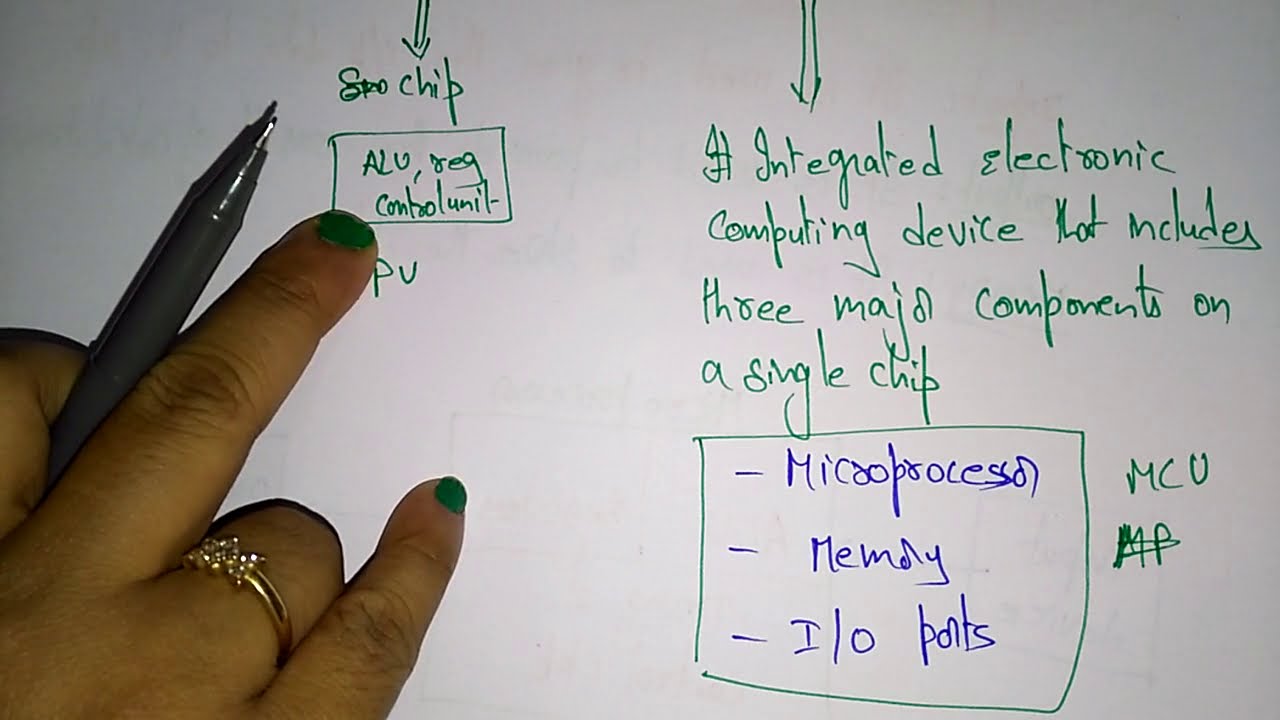 chip
ALU, reg
control unit
PU
Integrated electronic
Computing device that includes
three major components on
a single chip
- Microprocessor
- Memory
- I/O ports
MCU